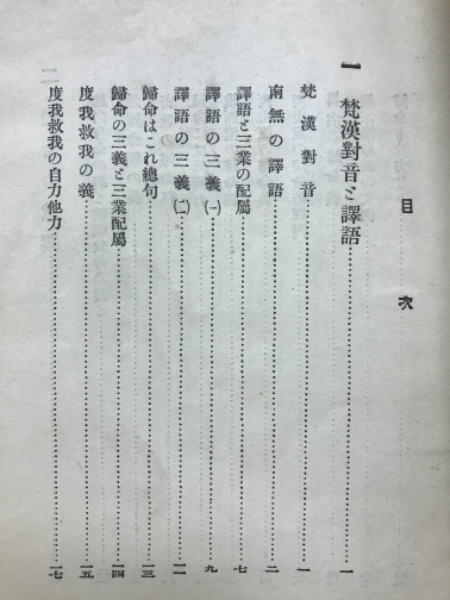 目次
一 梵漢對音と譯語……一
梵漢對音……一
南無の譯語……二
譯語と三業の配屬……七
譯語の三義(一)……九
譯語の三義(二)……一一
歸命はこれ總句……一三
歸命の三義と三業配屬……一四
度我救我の義……一五
度我救我の自力他力……一七